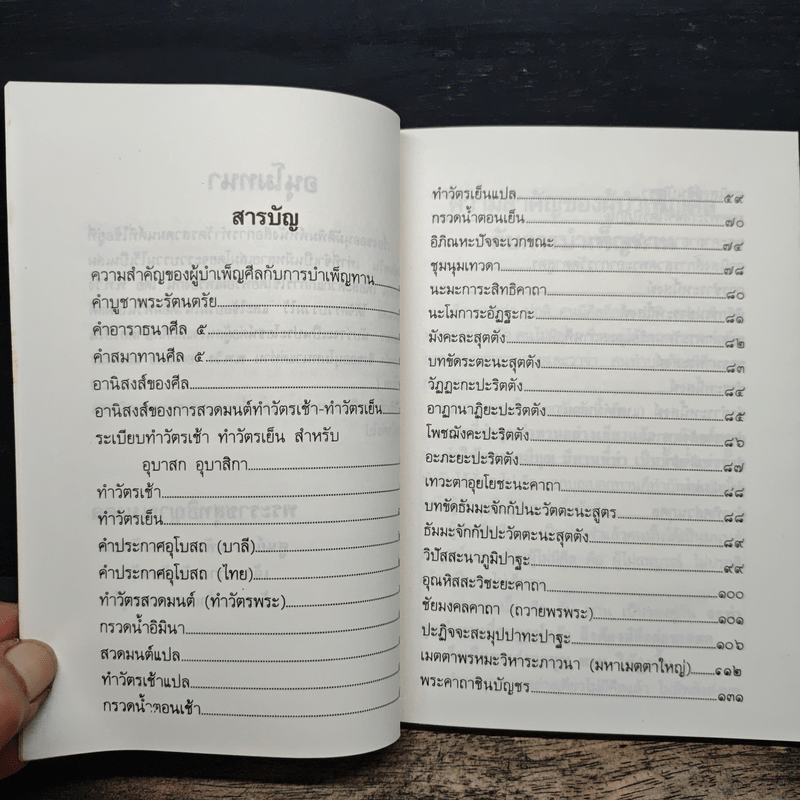 สารบัญ
ความสำคัญของผู้บำเพ็ญศีลกับการบำเพ็ญทาน
คำบูชาพระรัตนตรัย
คำอาราธนาศีล ๕
คำสมาทานศีล ๕
อานิสงส์ของศีล
อานิสงส์ของการสวดมนต์ทำวัตรเช้า-ทำวัตรเย็น
ระเบียบทำวัตรเช้า ทำวัตรเย็น สำหรับ
อุบาสก อุบาสิกา
ทำวัตรเช้า
ทำวัตรเย็น
คำประกาศอุโบสถ (บาลี)
คำประกาศอุโบสถ (ไทย)
ทำวัตรสวดมนต์ (ทำวัตรพระ)
กรวดน้ำอิมินา
สวดมนต์แปล
ทำวัตรเช้าแปล
กรวดน้ำตอนเช้า
ทำวัตรเย็นแปล ๕๙
กรวดน้ำตอนเย็น ๗๐
อภิณหะปัจจะเวกขณะ ๗๔
ชุมนุมเทวดา ๗๘
นะมะการะสิทธิคาถา ๘๐
นะโมการะอัฏฐะกะ ๘๑
มังคะละสุตตัง ๘๒
บทขัดระตะนะสุตตัง ๘๓
วัฏฏะกะปะริตตัง ๘๔
อาฏานาฏิยะปะริตตัง ๘๕
โพชฌังคะปะริตตัง ๘๖
อะภะยะปะริตตัง ๘๗
เทวะตาอุยโยชะนะคาถา ๘๘
บทขัดธัมมะจักกัปปะวัตตะนะสูตร ๘๘
ธัมมะจักกัปปะวัตตะนะสุตตัง ๘๙
วิปัสสะนาภูมิปาฐะ ๙๙
อุณหิสสะวิชะยะคาถา ๑๐๐
ชัยมงคลคาถา (ถวายพรพระ) ๑๐๑
ปะฏิจจะสะมุปปาทะปาฐะ ๑๐๖
เมตตาพรหมะวิหาระภาวนา (มหาเมตตาใหญ่) ๑๑๒
พระคาถาชินบัญชร ๑๓๑